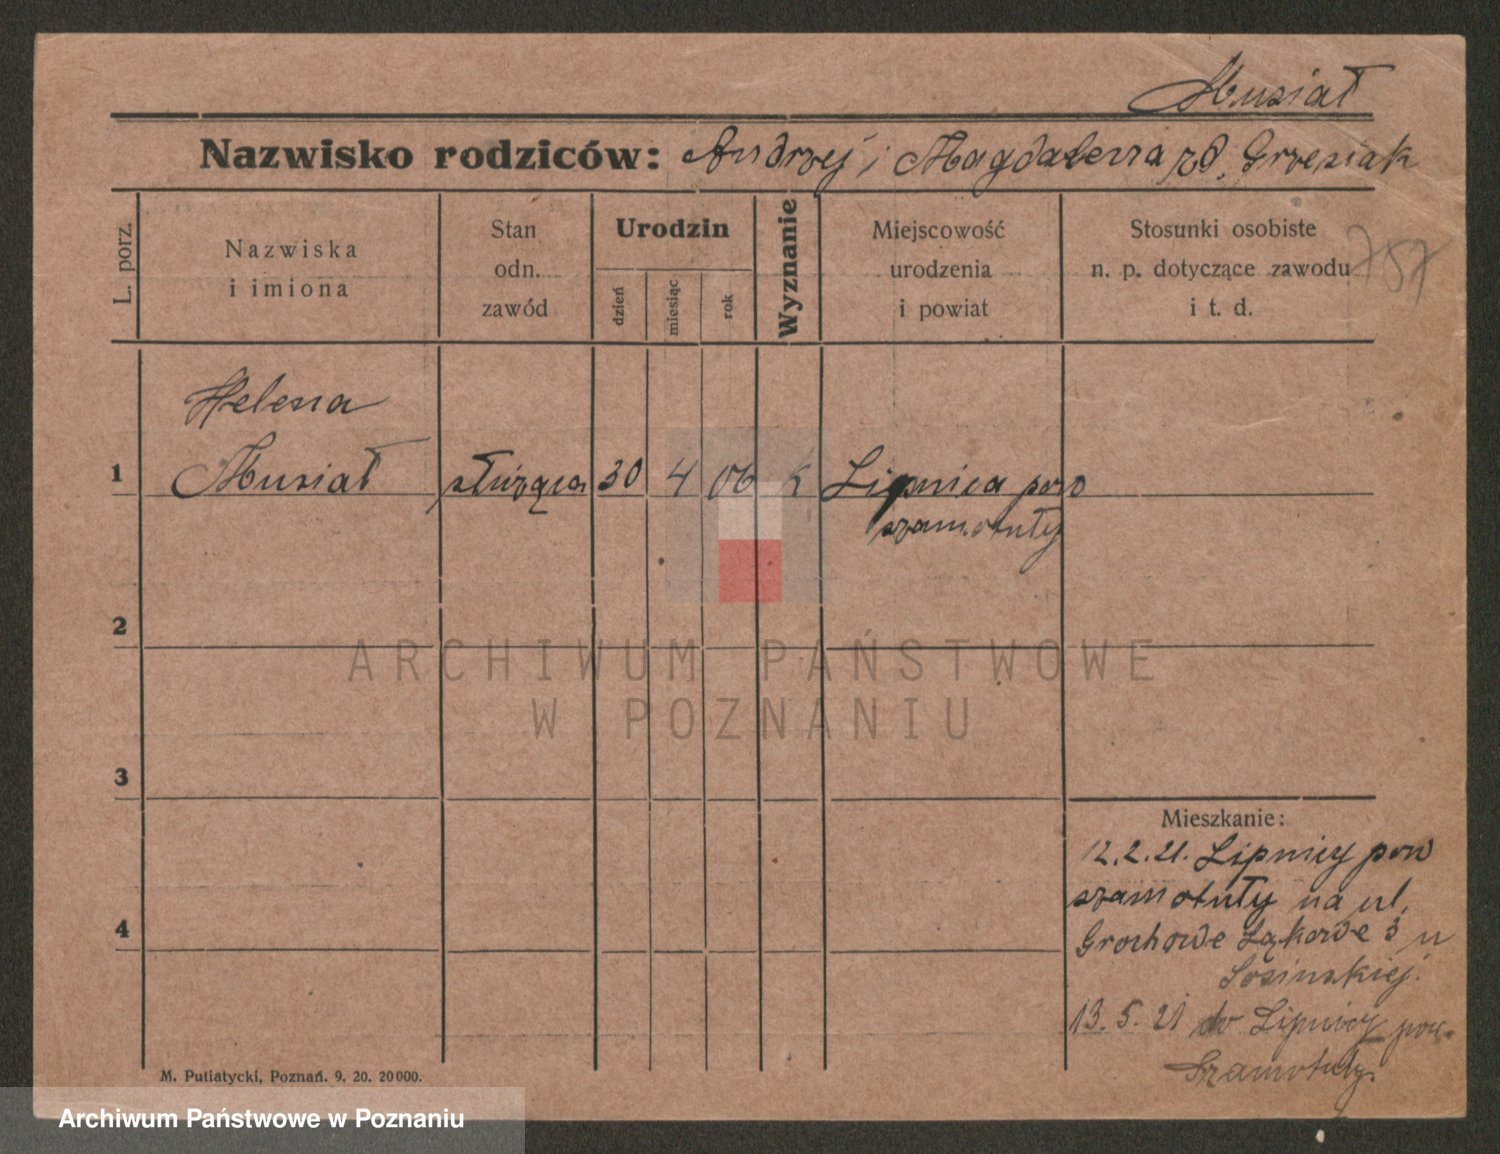 Musiał
Nazwisko rodziców: Andrzej i Magdalena zd. Grzesiak
L. porz.
Nazwiska
i imiona
Stan
odn.
zawód
Urodzin
dzień
miesiąc
rok
Wyznanie
Miejscowość
urodzenia
i powiat
Stosunki osobiste
n. p. dotyczące zawodu
i t. d.
757
Helena
1 Musiał służąca 30 4 06 k Lipnica pow
szamotuły
2
ARCHIWUM PAŃSTWOWE
W POZNANIU
3
Mieszkanie:
12.2.21. Lipnicy pow
szamotuły na ul.
4 Grochowe Łąkowe 3 u
Sosinskiej.
13. 5. 21 do Lipnicy pow.
Szamotuły.
M. Putiatycki, Poznań. 9. 20. 20000.
Archiwum Państwowe w Poznaniu